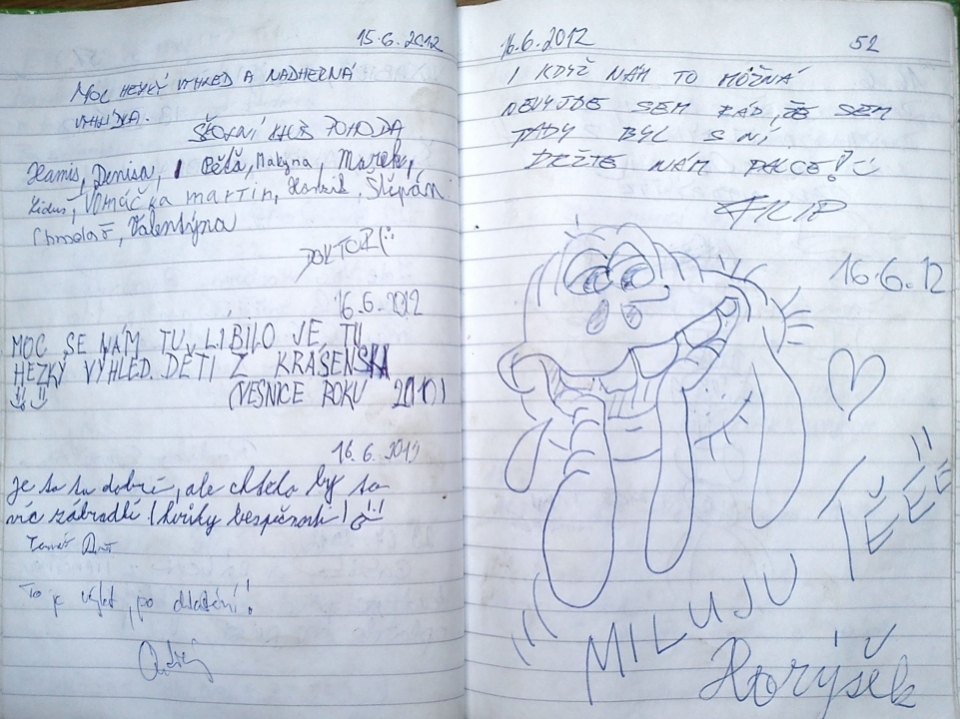 15.6.2012
MOC HEZKÝ VÝHLED A NADHERNÁ
VYHLÍDKA.
POHODA
Denisa, Péťa, Makyna, Marek,
Liduš, Vomáčka martin, Štěpán
Chmelař, Valentýna
DOKTOR (:
16.6.2012
MOC SE NÁM TU LÍBILO JE TU
HEZKÝ VÝHLED. DĚTI Z KRÁSENSKA
(VESNICE ROKU 2010)
16.6.2012
je to tu dobré, ale chtělo by to
víc zábradlí (kvůli bezpečnosti)
To je výlet, po dlažění!
Ondřej
16.6.2012
52
I KDYŽ NÁM TO MOŽNÁ
NEVYJDE SEM RÁD, ŽE SEM
TADY BYL S NÍ
DRŽTE NÁM PALCE! :)
FILIP
16.6.12
MILUJU TĚ
Rorýsek